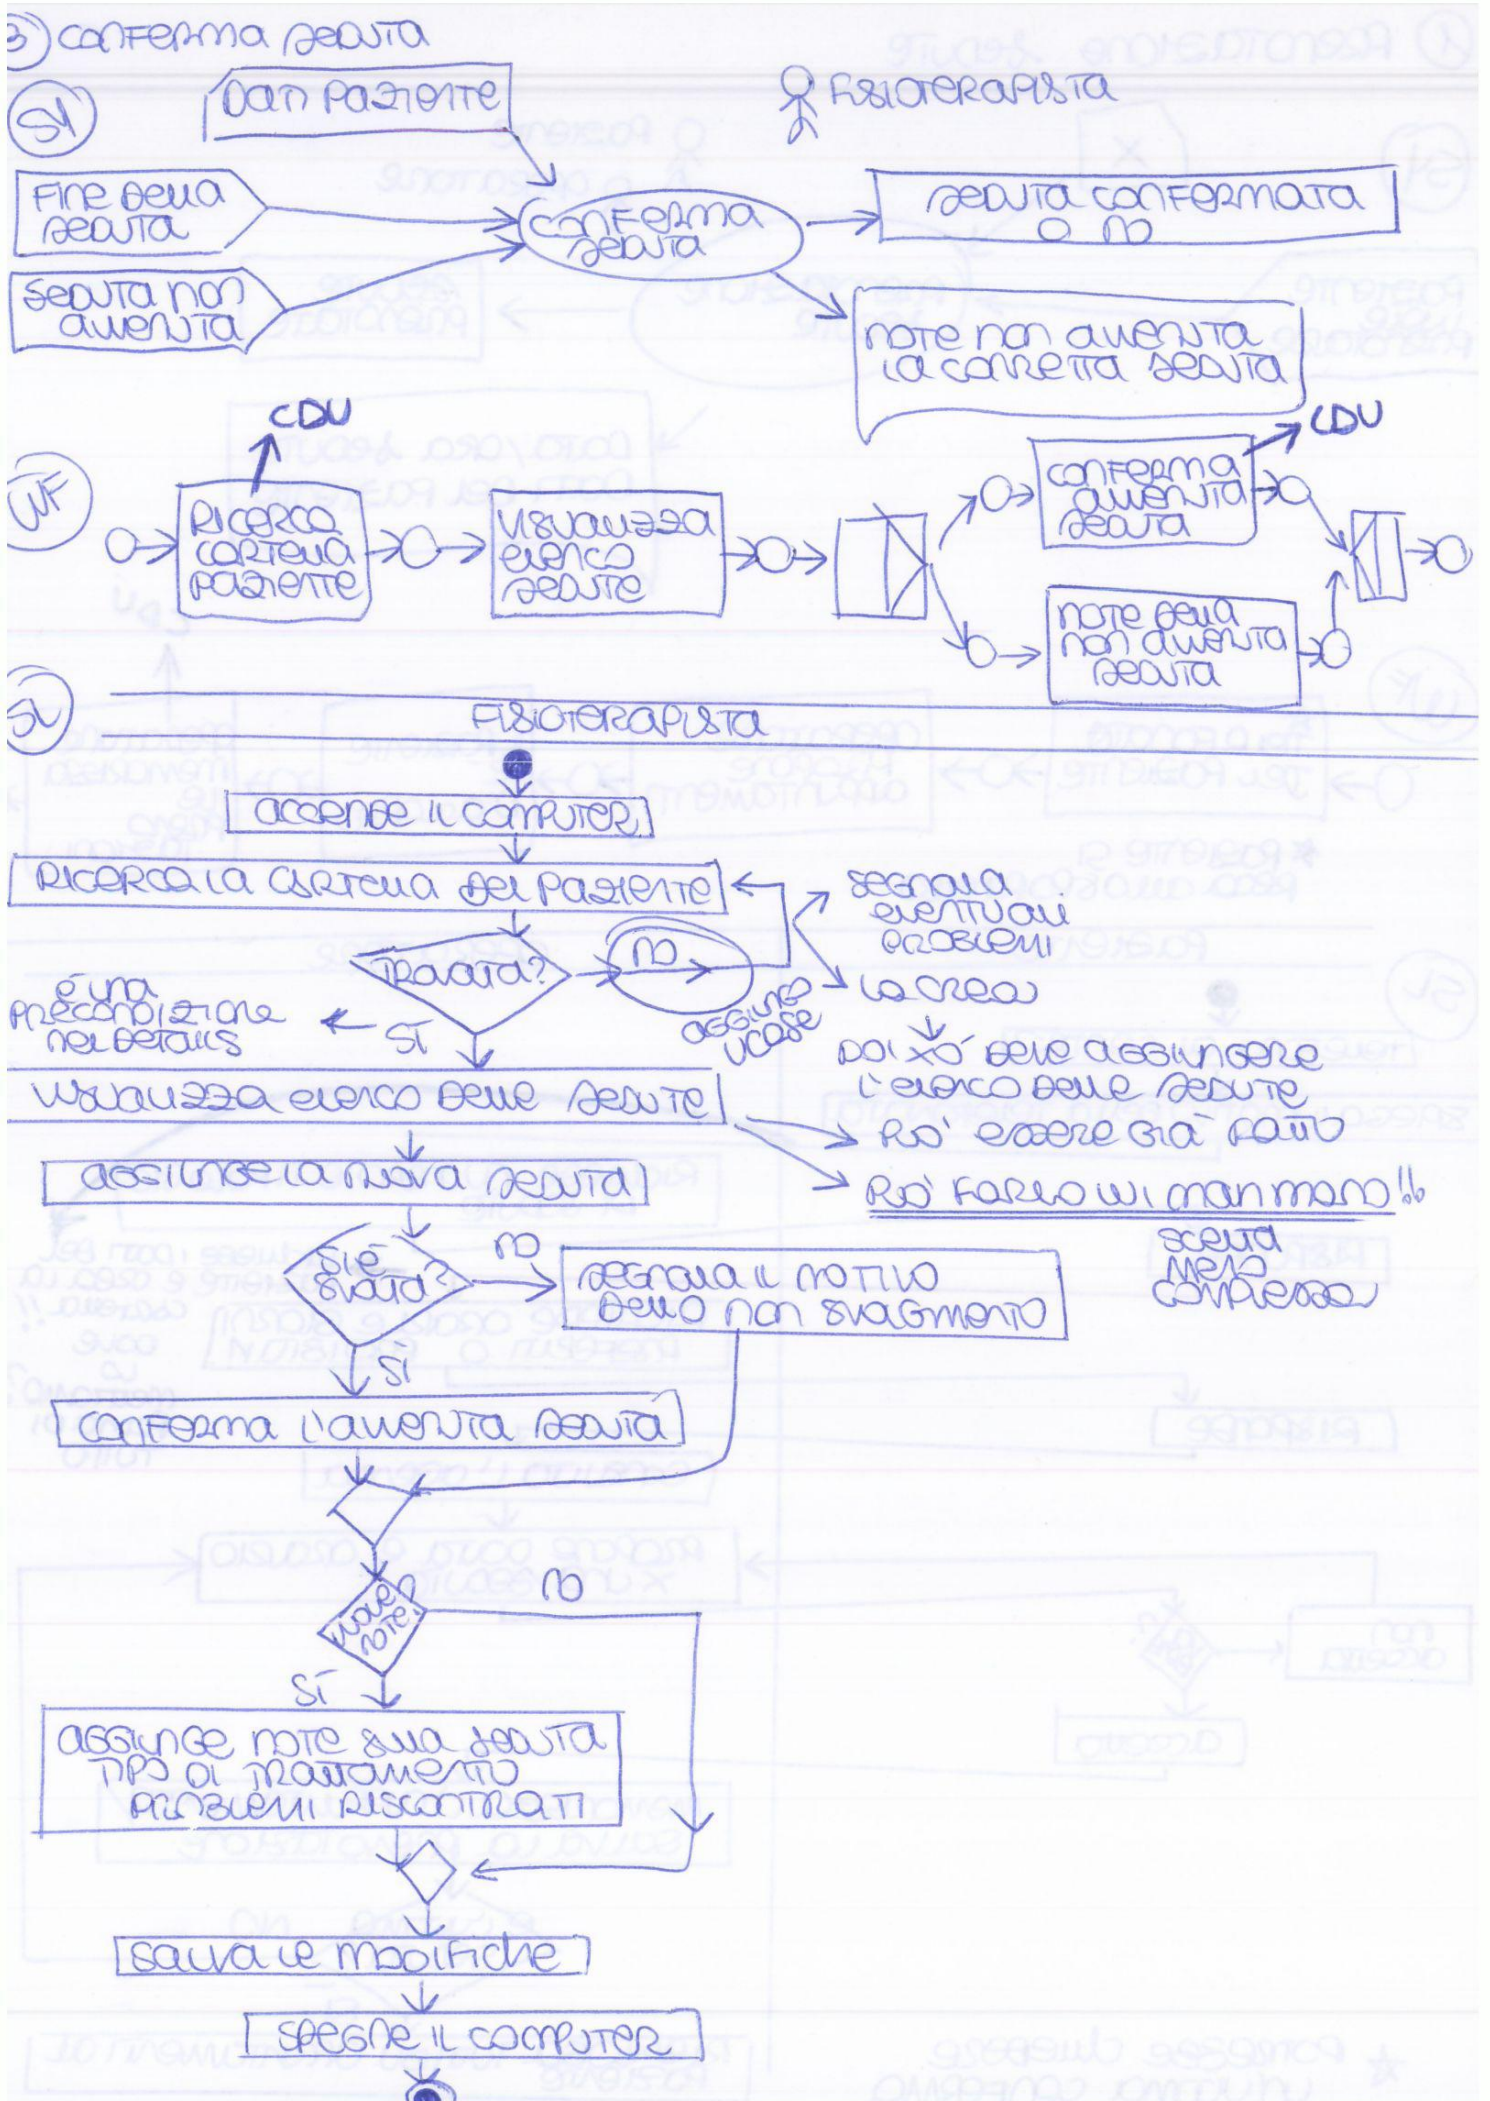 3) CONFERMA SEDUTA
S1
DATI PAZIENTE
FISIOTERAPISTA
FINE DELLA
SEDUTA
CONFERMA
SEDUTA
SEDUTA CONFERMATA
O NO
SEDUTA NON
AVVENUTA
NOTE NON AVVENUTA
LA CORRETTA SEDUTA
CDU
CDU
WF
RICERCA
CARTELLA
PAZIENTE
VISUALIZZA
ELENCO
SEDUTE
CONFERMA
AVVENUTA
SEDUTA
NOTE DELLA
NON AVVENUTA
SEDUTA
SL
FISIOTERAPISTA
ACCENDE IL COMPUTER
RICERCA LA CARTELLA DEL PAZIENTE
SEGNALA
EVENTUALI
PROBLEMI
TROVATA?
NO
LA CREA
AGGIUNGI
UCASE
È UNA
PRECONDIZIONE
NEI DETAILS
SÌ
POI XÒ DEVE AGGIUNGERE
L'ELENCO DELLE SEDUTE
VISUALIZZA ELENCO DELLE SEDUTE
PUÒ ESSERE GIÀ FATTO
AGGIUNGE LA NUOVA SEDUTA
PUÒ FARLO LUI MAN MANO!!
SCELTA
MENO
COMPLESSA
SI È
SVOLTA?
NO
SEGNALA IL MOTIVO
DELLO NON SVOLGIMENTO
SÌ
CONFERMA L'AVVENUTA SEDUTA
NO
NOTE?
SÌ
AGGIUNGE NOTE SULLA SEDUTA
TIPO DI TRATTAMENTO
PROBLEMI RISCONTRATI
SALVA LE MODIFICHE
SPEGNE IL COMPUTER